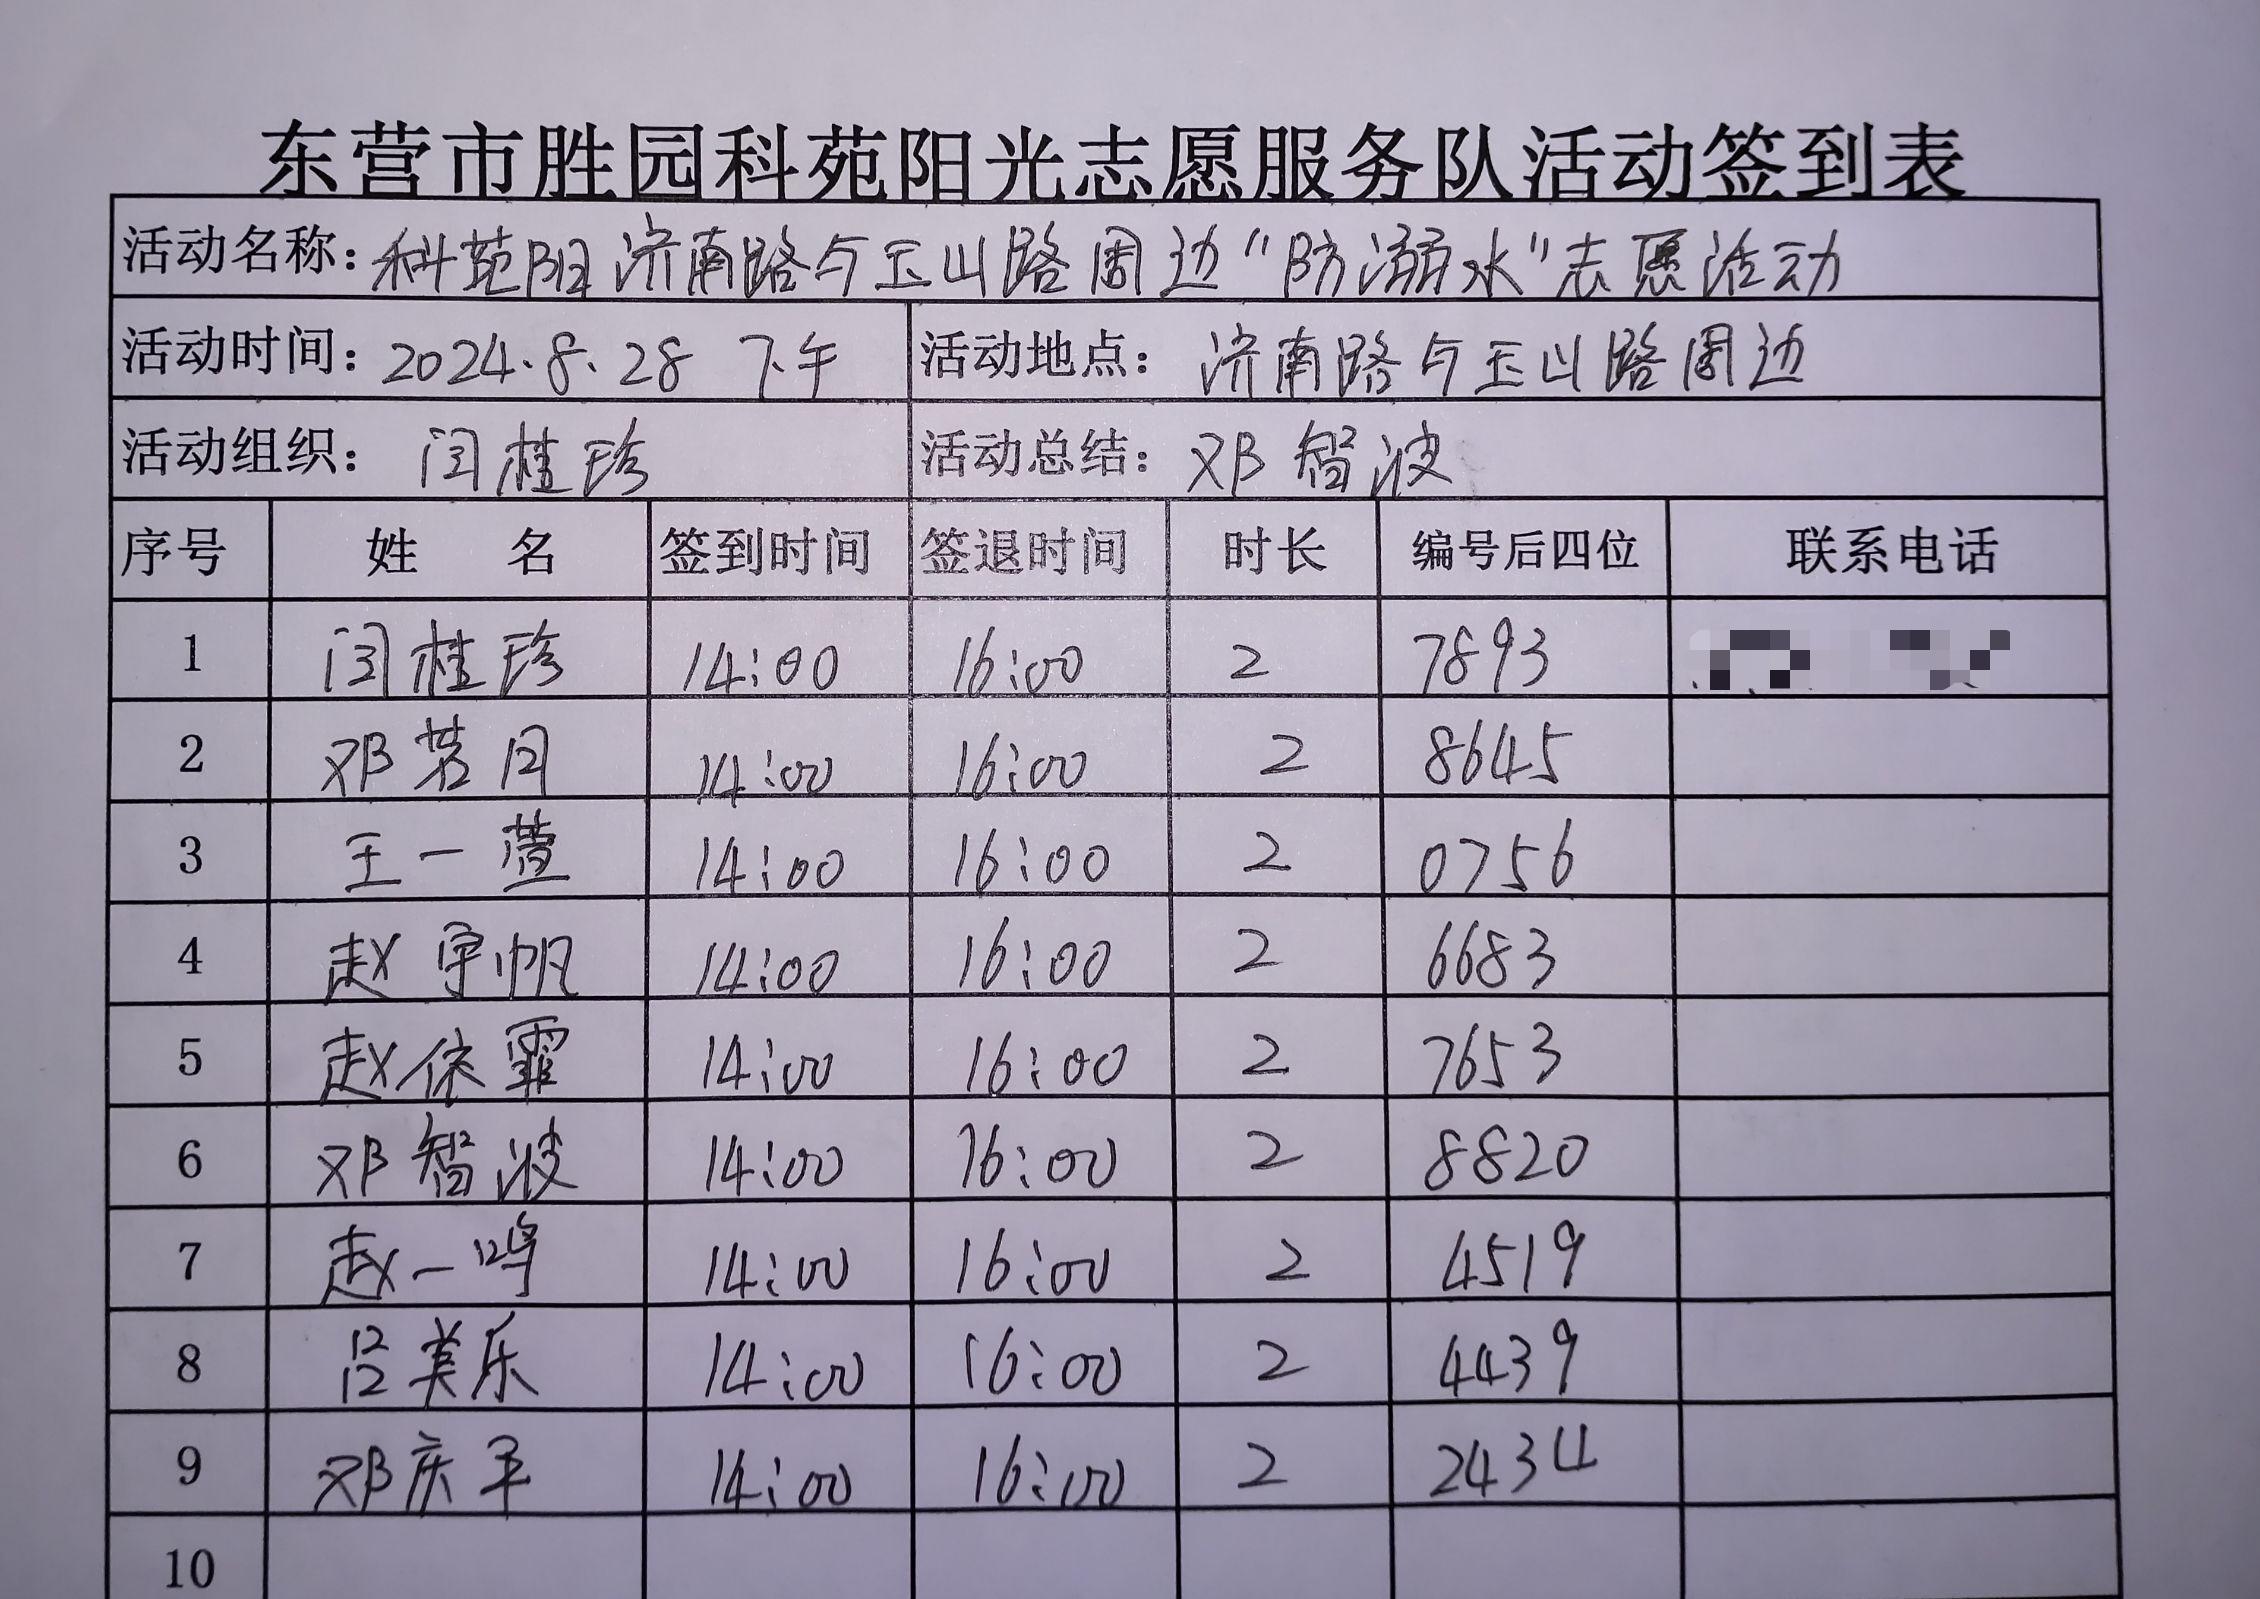 东营市胜园科苑阳光志愿服务队活动签到表
活动名称：科苑阳济南路与玉山路周边“防溺水”志愿活动
活动时间：2024.8.28 下午 活动地点：济南路与玉山路周边
活动组织：闫桂珍 活动总结：邓智波
序号 姓名 签到时间 签退时间 时长 编号后四位 联系电话
1 闫桂珍 14:00 16:00 2 7893
2 邓茗月 14:00 16:00 2 8645
3 王一萱 14:00 16:00 2 0756
4 赵宇帆 14:00 16:00 2 6683
5 赵依霏 14:00 16:00 2 7653
6 邓智波 14:00 16:00 2 8820
7 赵一鸣 14:00 16:00 2 4519
8 吕美乐 14:00 16:00 2 4439
9 邓庆平 14:00 16:00 2 2434
10